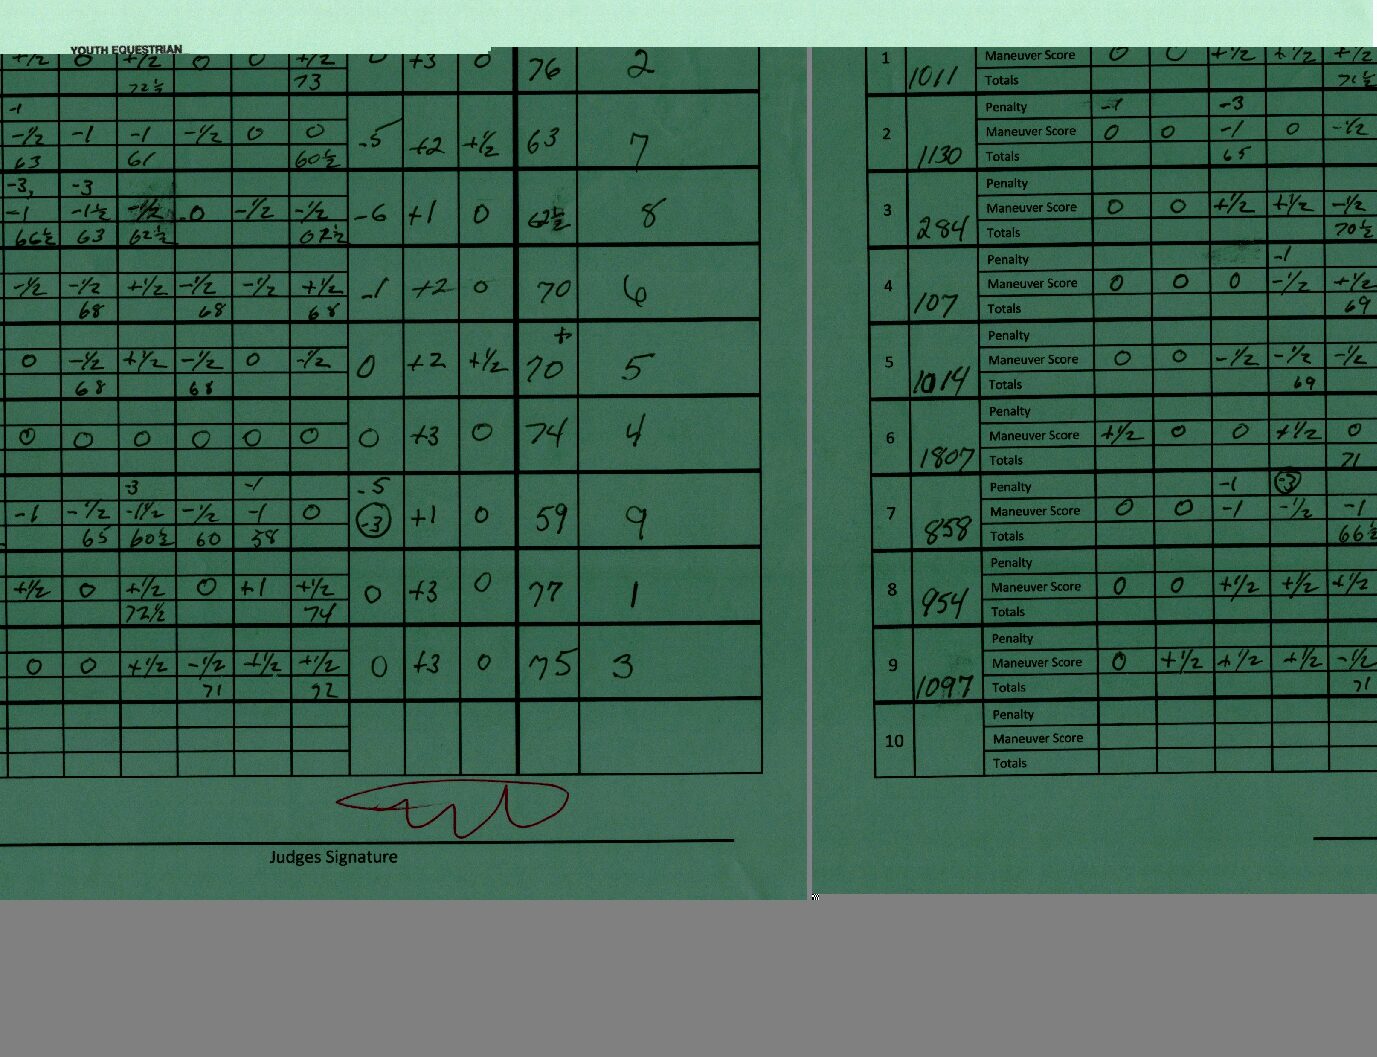 YOUTH EQUESTRIAN
+1/2 0 +1/2 0 0 +1/2 0 +3 0 76 2
72½ 73
-1
-1/2 -1 -1 -1/2 0 0 -5 +2 +1/2 63 7
63 61 60½
-3, -3
-1 -1½ -1/2 0 -1/2 -1/2 -6 +1 0 62½ 8
66½ 63 62½ 62½
-1/2 -1/2 +1/2 -1/2 -1/2 +1/2 -1 +2 0 70 6
68 68 68
+
0 -1/2 +1/2 -1/2 0 -1/2 0 +2 +1/2 70 5
68 68
0 0 0 0 0 0 0 +3 0 74 4
-3 -1 -5
-1 -1/2 -1½ -1/2 -1 0 -3 +1 0 59 9
65 60½ 60 58
+1/2 0 +1/2 0 +1 +1/2 0 +3 0 77 1
72½ 74
0 0 +1/2 -1/2 +1/2 +1/2 0 +3 0 75 3
71 72
Judges Signature
1 1011 Maneuver Score 0 0 +1/2 +1/2 +1/2
Totals 71½
Penalty -1 -3
2 1130 Maneuver Score 0 0 -1 0 -1/2
Totals 65
Penalty
3 284 Maneuver Score 0 0 +1/2 +1/2 -1/2
Totals 70½
Penalty -1
4 107 Maneuver Score 0 0 0 -1/2 +1/2
Totals 69
Penalty
5 1014 Maneuver Score 0 0 -1/2 -1/2 -1/2
Totals 69
Penalty
6 1807 Maneuver Score +1/2 0 0 +1/2 0
Totals 71
Penalty -1 -3
7 858 Maneuver Score 0 0 -1 -1/2 -1
Totals 66½
Penalty
8 954 Maneuver Score 0 0 +1/2 +1/2 +1/2
Totals
Penalty
9 1097 Maneuver Score 0 +1/2 +1/2 +1/2 -1/2
Totals 71
Penalty
10 Maneuver Score
Totals